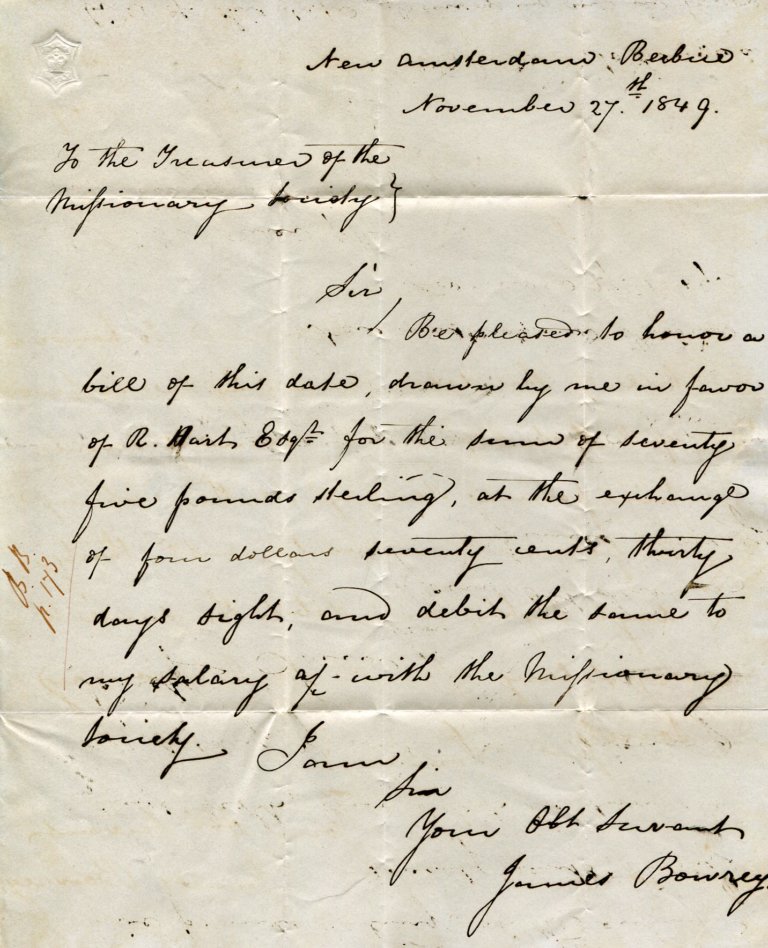 New Amsterdam Berbice
November 27.th 1849.
To the Treasurer of the
Missionary Society}
Sir
Be pleased to honor a
bill of this date, drawn by me in favor
of R. Hart Esqr. for the sum of seventy
five pounds sterling, at the exchange
of four dollars seventy cents, thirty
days sight, and debit the same to
my salary a/c with the Missionary
Society. I am
Sir
Your Obt Servant
James Bowrey.
B.B.
p. 173